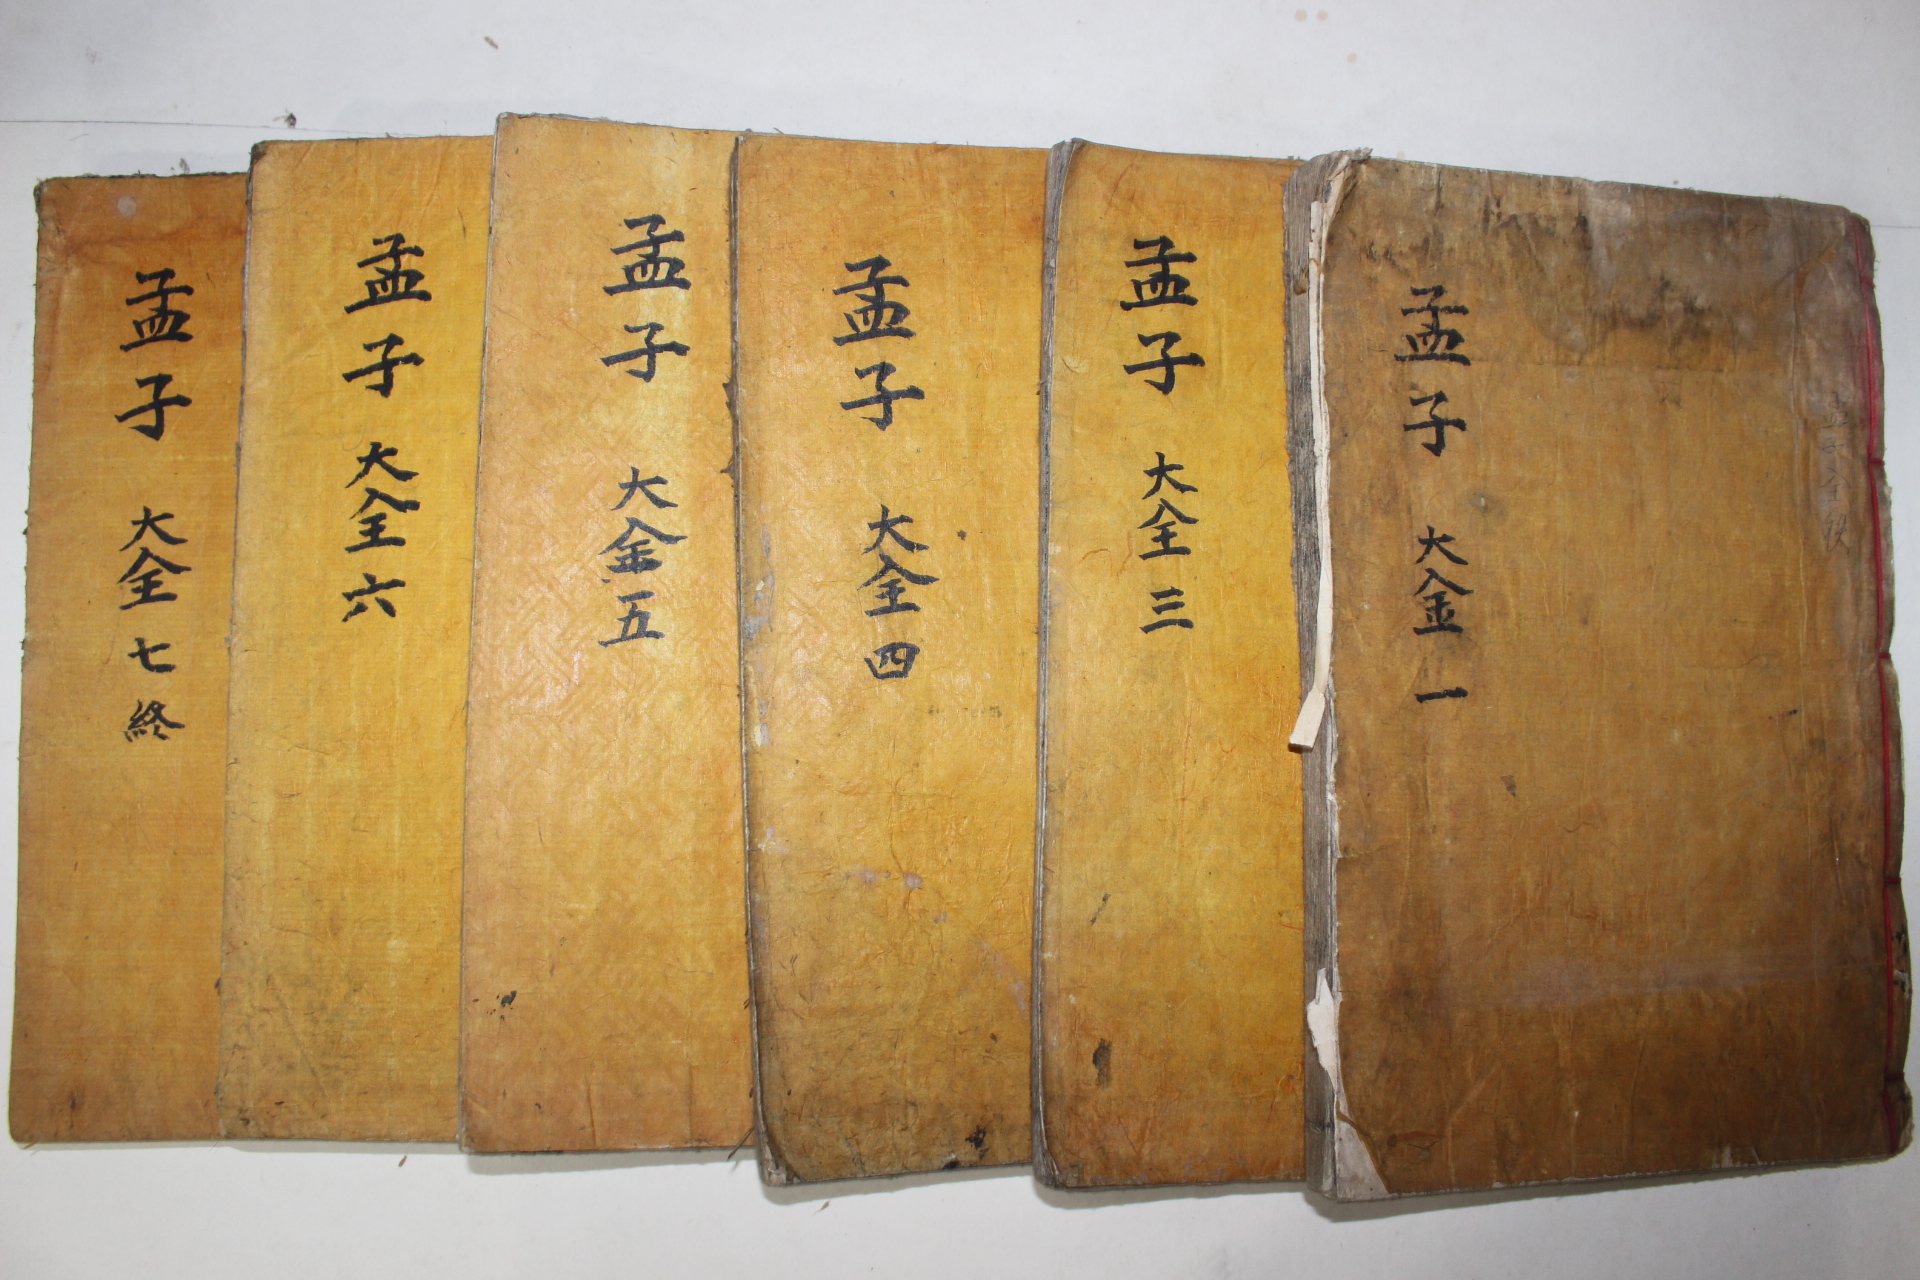 孟子 大全 一
孟子 大全 三
孟子 大全 四
孟子 大全 五
孟子 大全 六
孟子 大全 七 終